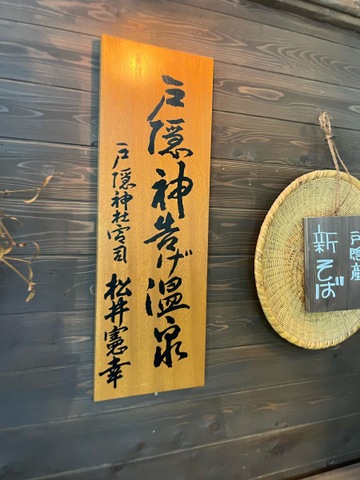 戸隠神告げ温泉
戸隠神社宮司 松井憲幸
戸隠産
新そば